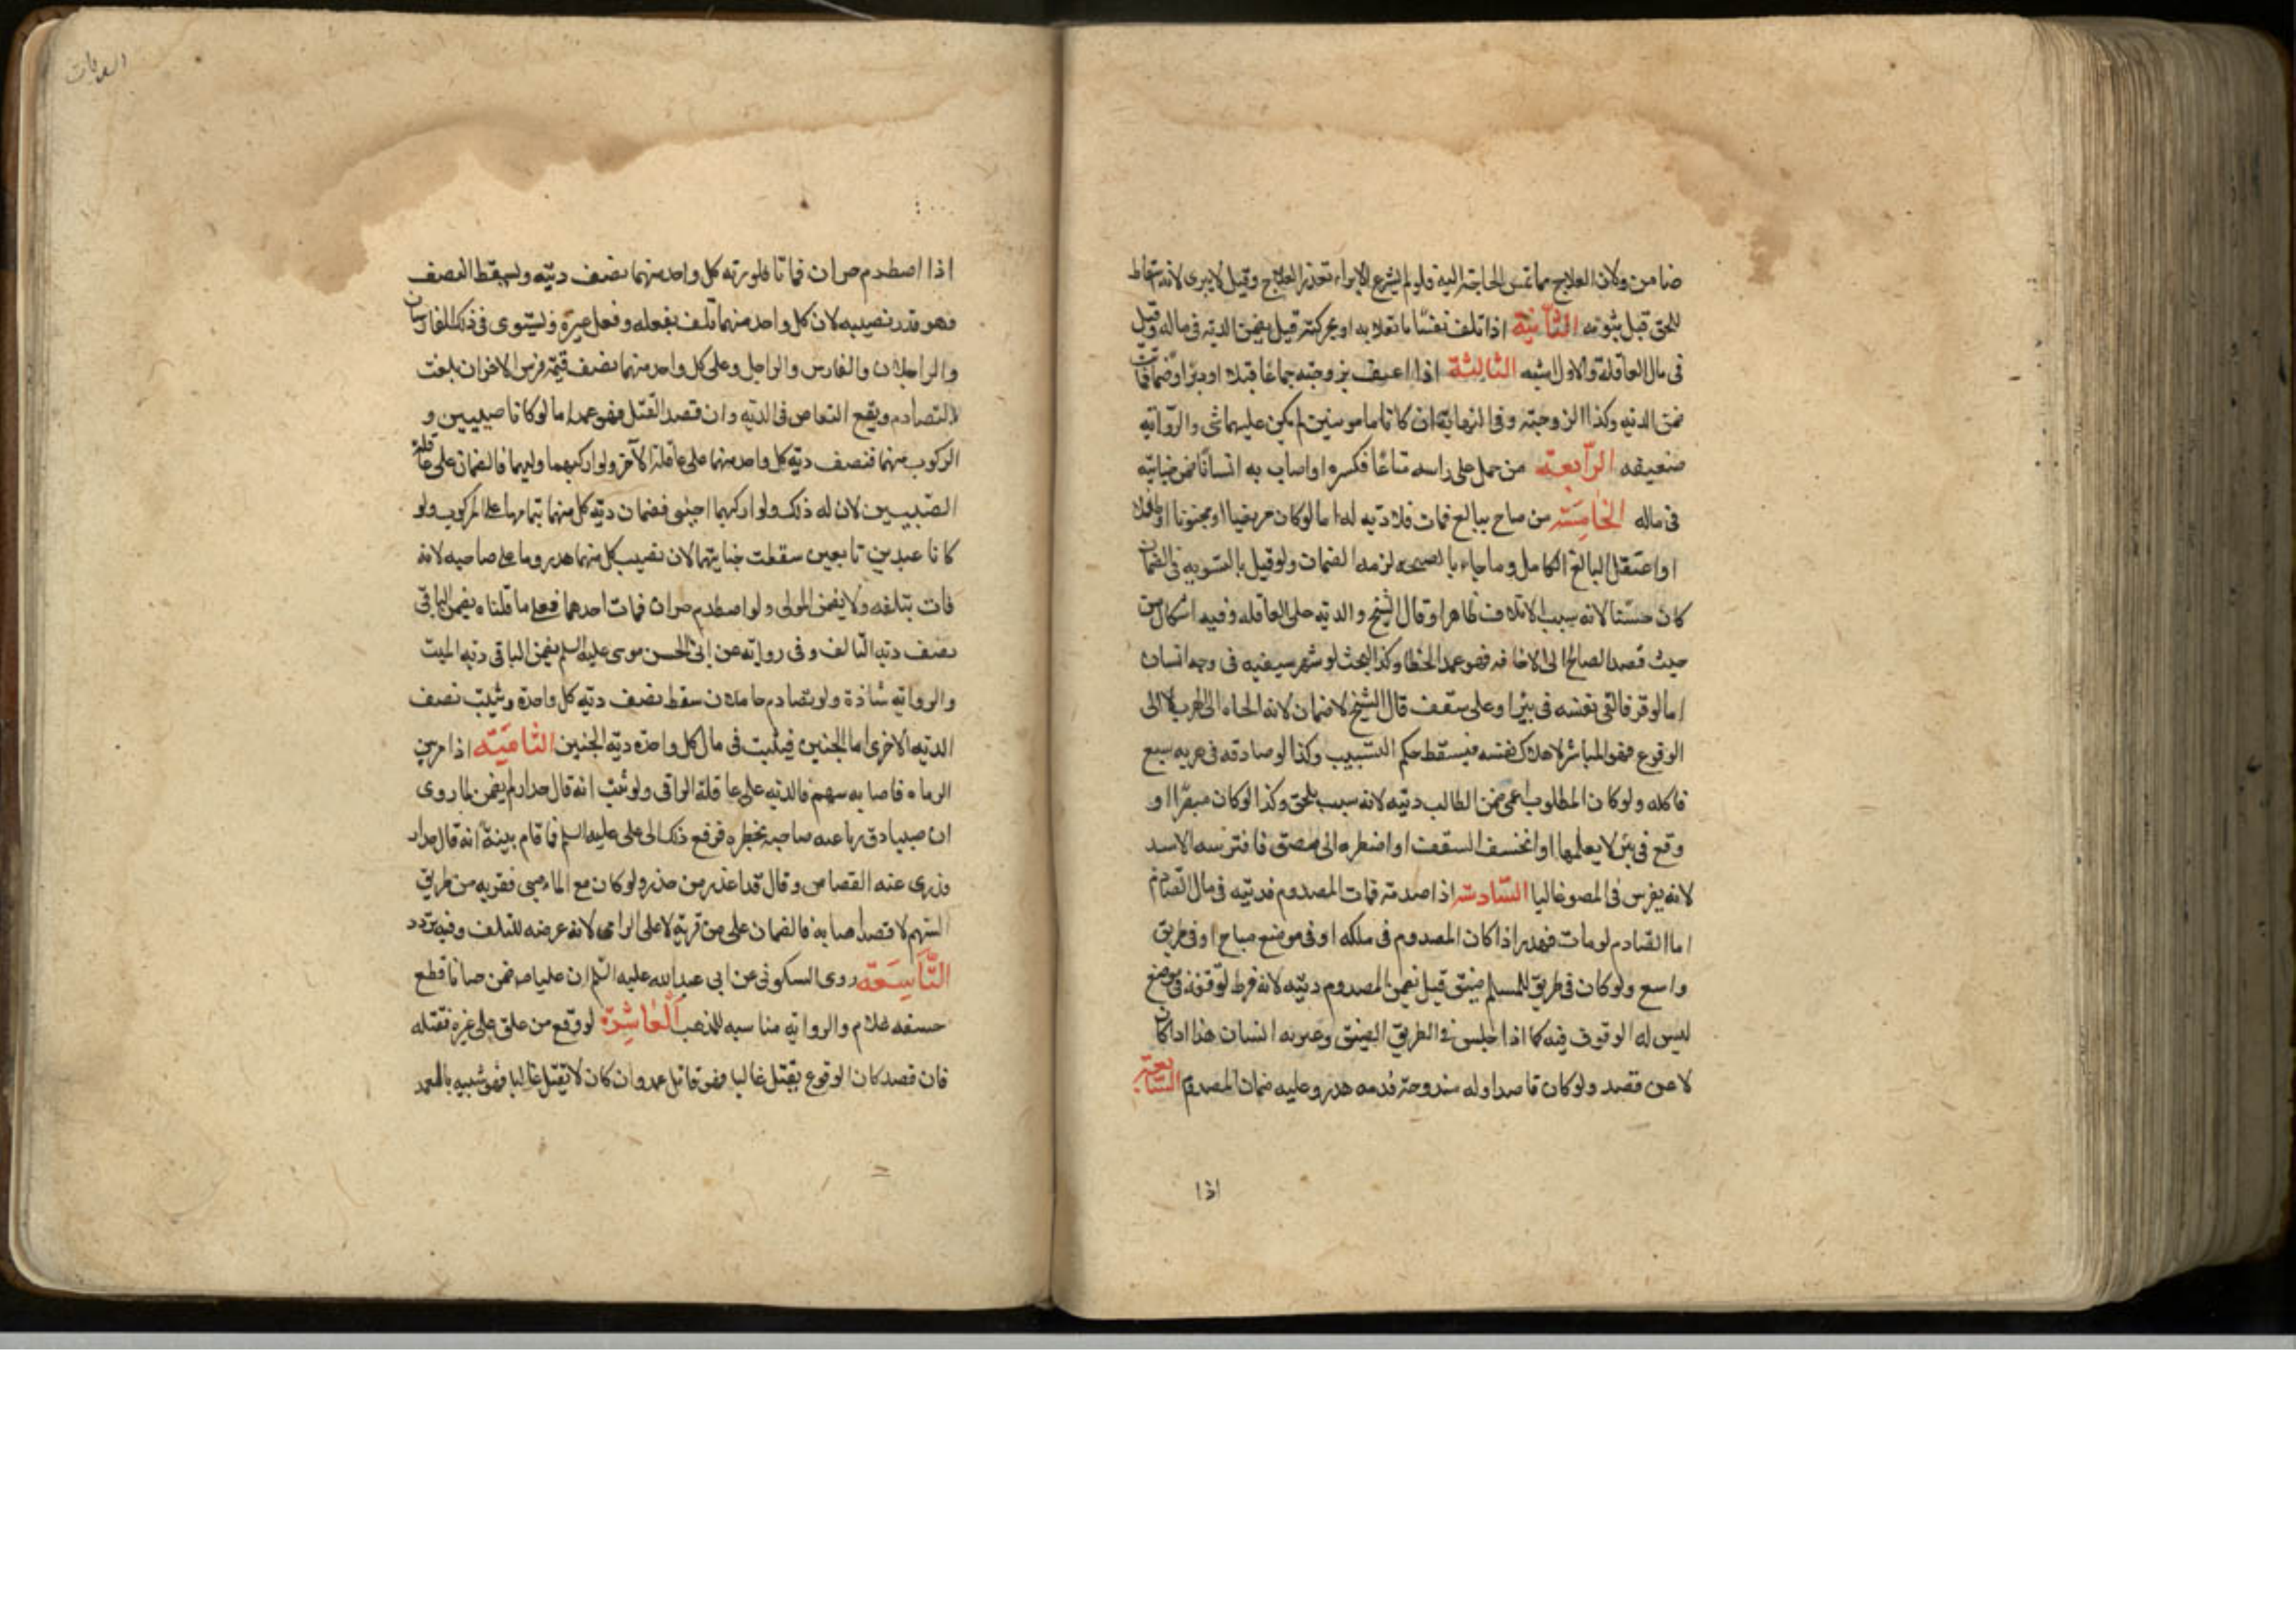 ضامن ولان العلاج مما تمس الحاجة اليه فلو لم يشرع الابراء تعذر العلاج وقيل لا يبرى لانه اسقاط
للحق قبل ثبوته الثانية اذا تلف نفسا ما بقلابه او بحركته قيل يضمن الدية فى ماله وقيل
فى مال العاقلة والاول اشبه الثالثة اذا اعنف بزوجته جماعا قبلا او دبرا او ضما فماتت
ضمن الدية وكذا الزوجة وفى النهاية ان كانا مامونين لم يكن عليهما شى والرواية
ضعيفه الرابعة من حمل على راسه متاعا فكسره او اصاب به انسانا ضمن جنايته
فى ماله الخامسة من صاح ببالغ فمات فلا دية له اما لو كان مريضا او مجنونا او طفلا
او اعتقل البالغ الكامل وفاجاه بالصيحه لزمه الضمان ولو قيل بالتسويه فى الضمان
كان حسنا لانه سبب الاتلاف ظاهرا وقال الشيخ والدية على العاقله وفيه اشكال من
حيث قصد الصائح الى الاخافه فهو عمد الخطا وكذا البحث لو شهر سيفه فى وجه انسان
اما لو فر فالقى نفسه فى بئر او على سقف قال الشيخ لا ضمان لانه الجاه الى الهرب لا الى
الوقوع فهو المباشر لاهلاك نفسه فيسقط حكم التسبيب وكذا لو صادفه فى هربه سبع
فاكله ولو كان المطلوب اعمى ضمن الطالب ديته لانه سبب ملجئ وكذا لو كان مبصرا او
وقع فى بئر لا يعلمها او انخسف السقف او اضطره الى مضيق فافترسه الاسد
لانه يفرس فى المضيق غالبا السادسة اذا صدمه فمات المصدوم فديته فى مال الصادم
اما الصادم لو مات فهدر اذا كان المصدوم فى ملكه او فى موضع مباح او فى طريق
واسع ولو كان فى طريق المسلم ضيق قيل يضمن المصدوم ديته لانه فرط لوقوفه فى موضع
ليس له الوقوف فيه كما اذا جلس فى الطريق الضيق وعثر به انسان هذا اذا كان
لا عن قصد ولو كان قاصدا وله مندوحة فدمه هدر وعليه ضمان المصدوم السابعة
اذا
اذا اصطدم حران فماتا فلورثة كل واحد منهما نصف ديته ويسقط النصف
وهو قدر نصيبه لان كل واحد منهما تلف بفعله وفعل غيره ويستوى فى ذلك الفارسان
والراجلان والفارس والراجل وعلى كل واحد منهما نصف قيمة فرس الاخر ان تلفت
بالتصادم ويقع التقاص فى الدية وان قصد القتل فهو عمد اما لو كانا صبيين و
الركوب منهما فنصف دية كل واحد منهما على عاقلة الاخر ولو اركبهما وليهما فالضمان على عاقلة
الصبيين لان له ذلك ولو اركبهما اجنبى فضمان دية كل منهما بتمامها على المركب ولو
كانا عبدين بالغين سقطت جنايتهما لان نصيب كل منهما هدر وما على صاحبه لانه
فات بتلفه ولا يضمن المولى ولو اصطدم حران فمات احدهما فعلى ما قلناه يضمن الباقى
نصف دية التالف وفى رواية عن ابى الحسن موسى عليه السلم يضمن الباقى دية الميت
والرواية شاذة ولو تصادم حاملان سقط نصف دية كل واحدة وثبت نصف
الدية الاخرى اما الجنين فيثبت فى مال كل واحدة دية الجنين الثامنة اذا مر بين
الرماه فاصابه سهم فالدية على عاقلة الرامى ولو ثبت انه قال حذار لم يضمن لما روى
ان صبيا دق رباعيه صاحبه بخطره فرفع ذلك الى على عليه السلم فاقام بينة انه قال حذار
فدرى عنه القصاص وقال قد اعذر من حذر ولو كان مع المار صبى فقربه من طريق
السهم لا قصدا فاصابه فالضمان على من قربه لا على الرامى لانه عرضه للتلف وفيه تردد
التاسعة روى السكونى عن ابى عبدالله عليه السلم ان عليا ضمن ختانا قطع
حشفه غلام والرواية مناسبه للمذهب العاشرة لو وقع من علو على غيره فقتله
فان قصد كان الوقوع يقتل غالبا فهو قاتل عمد وان كان لا يقتل غالبا فهو شبيه بالعمد